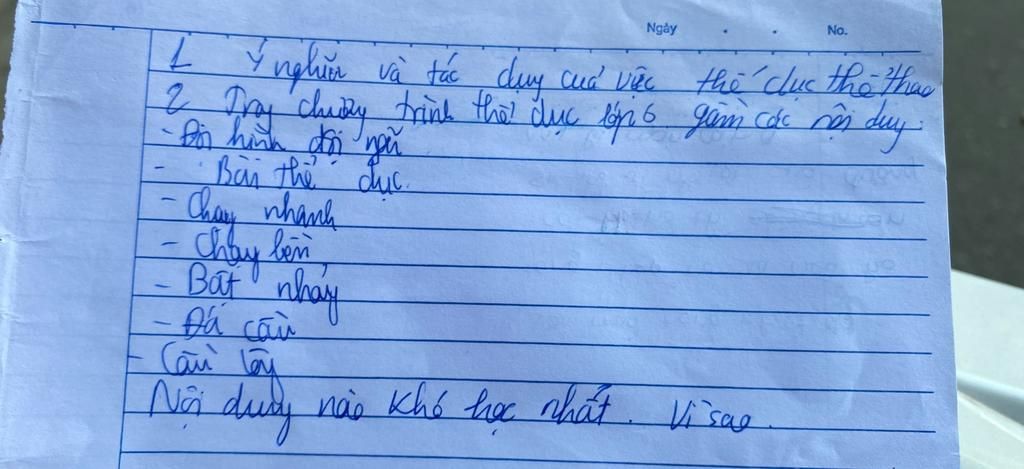 Ngày . . No.
1 Ý nghĩa và tác dụng cuả việc thể dục thể thao
2 Trong chương trình thể dục lớp 6 gồm các nội dung.
- Đội hình đội ngũ
- Bài thể dục.
- Chạy nhanh
- Chạy bền
- Bật nhảy
- Đá cầu
- Cầu lông
Nội dung nào khó học nhất. Vì sao.